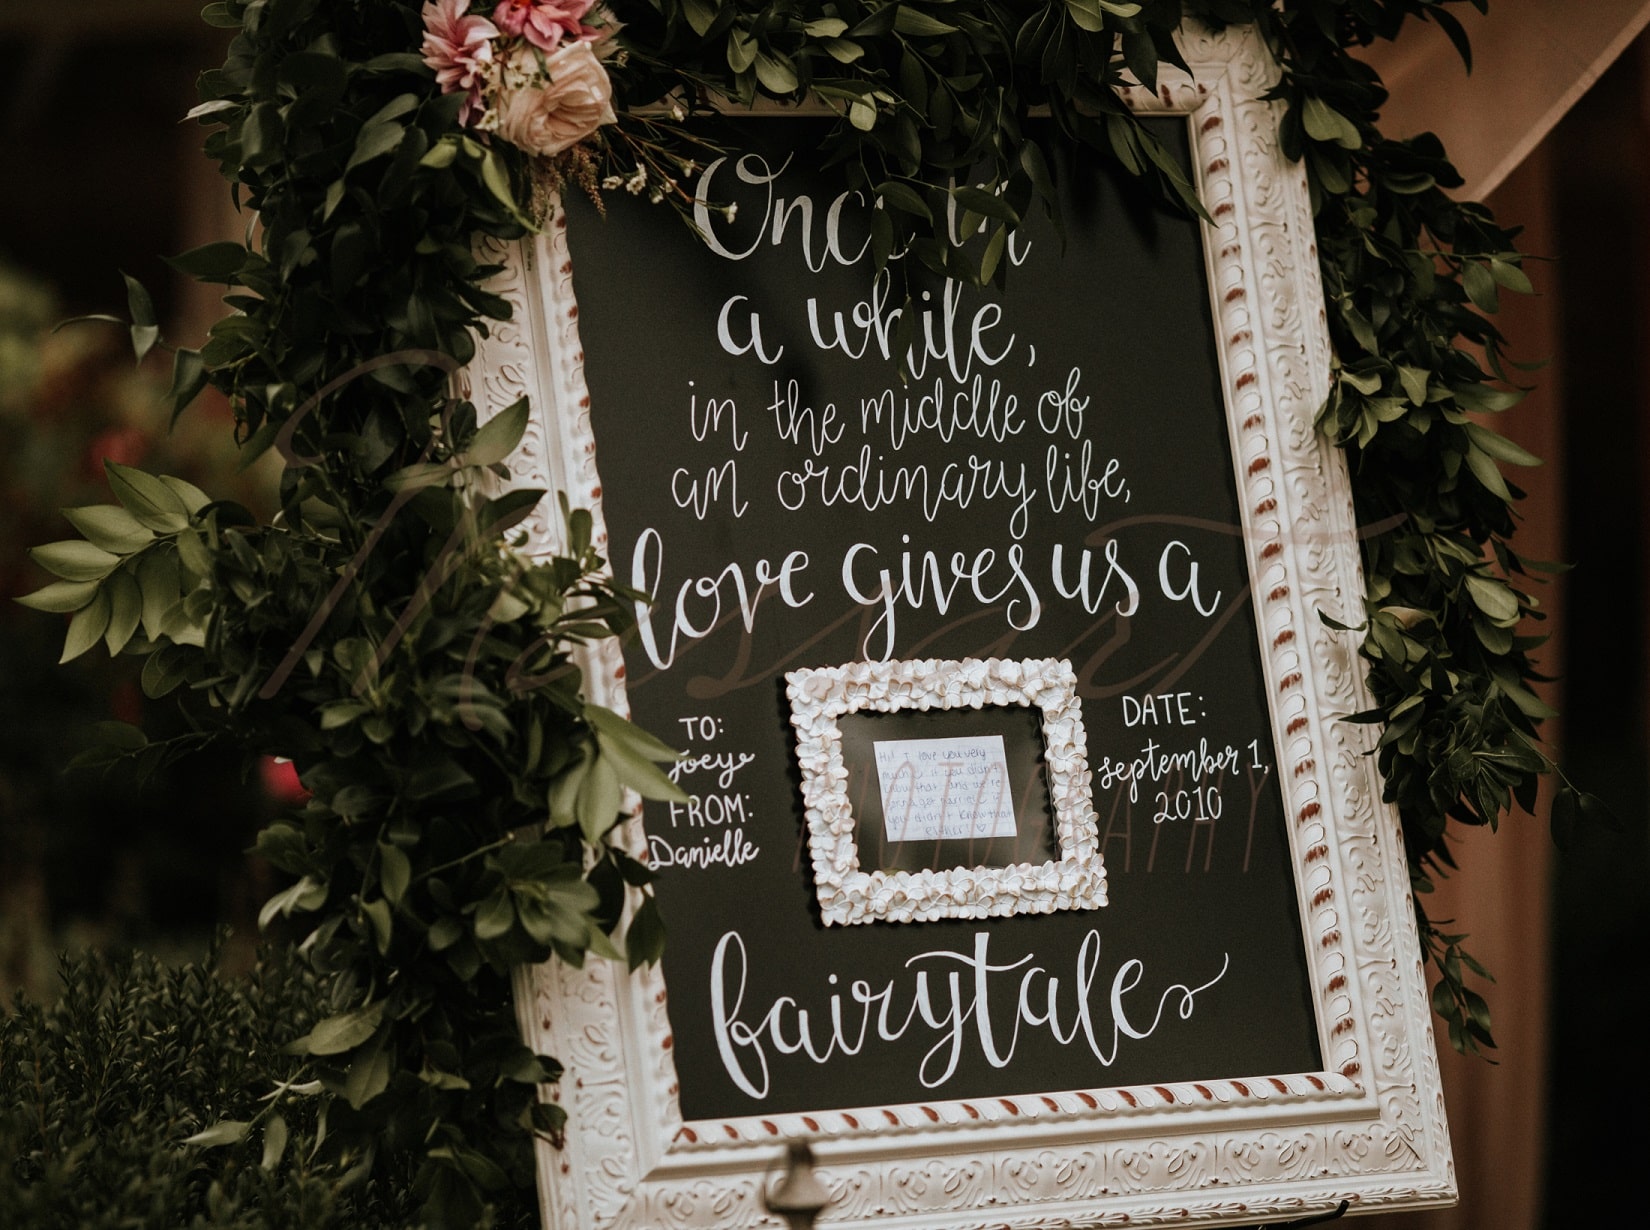 Once in
a while,
in the middle of
an ordinary life,
love gives us a
TO:
Joey
FROM:
Danielle
Hi! I love you very
much if you didn't
know that and we're
get married if
you didn't know that
either! ♡
DATE:
september 1,
2010
fairytale
Mossart
PHOTOGRAPHY